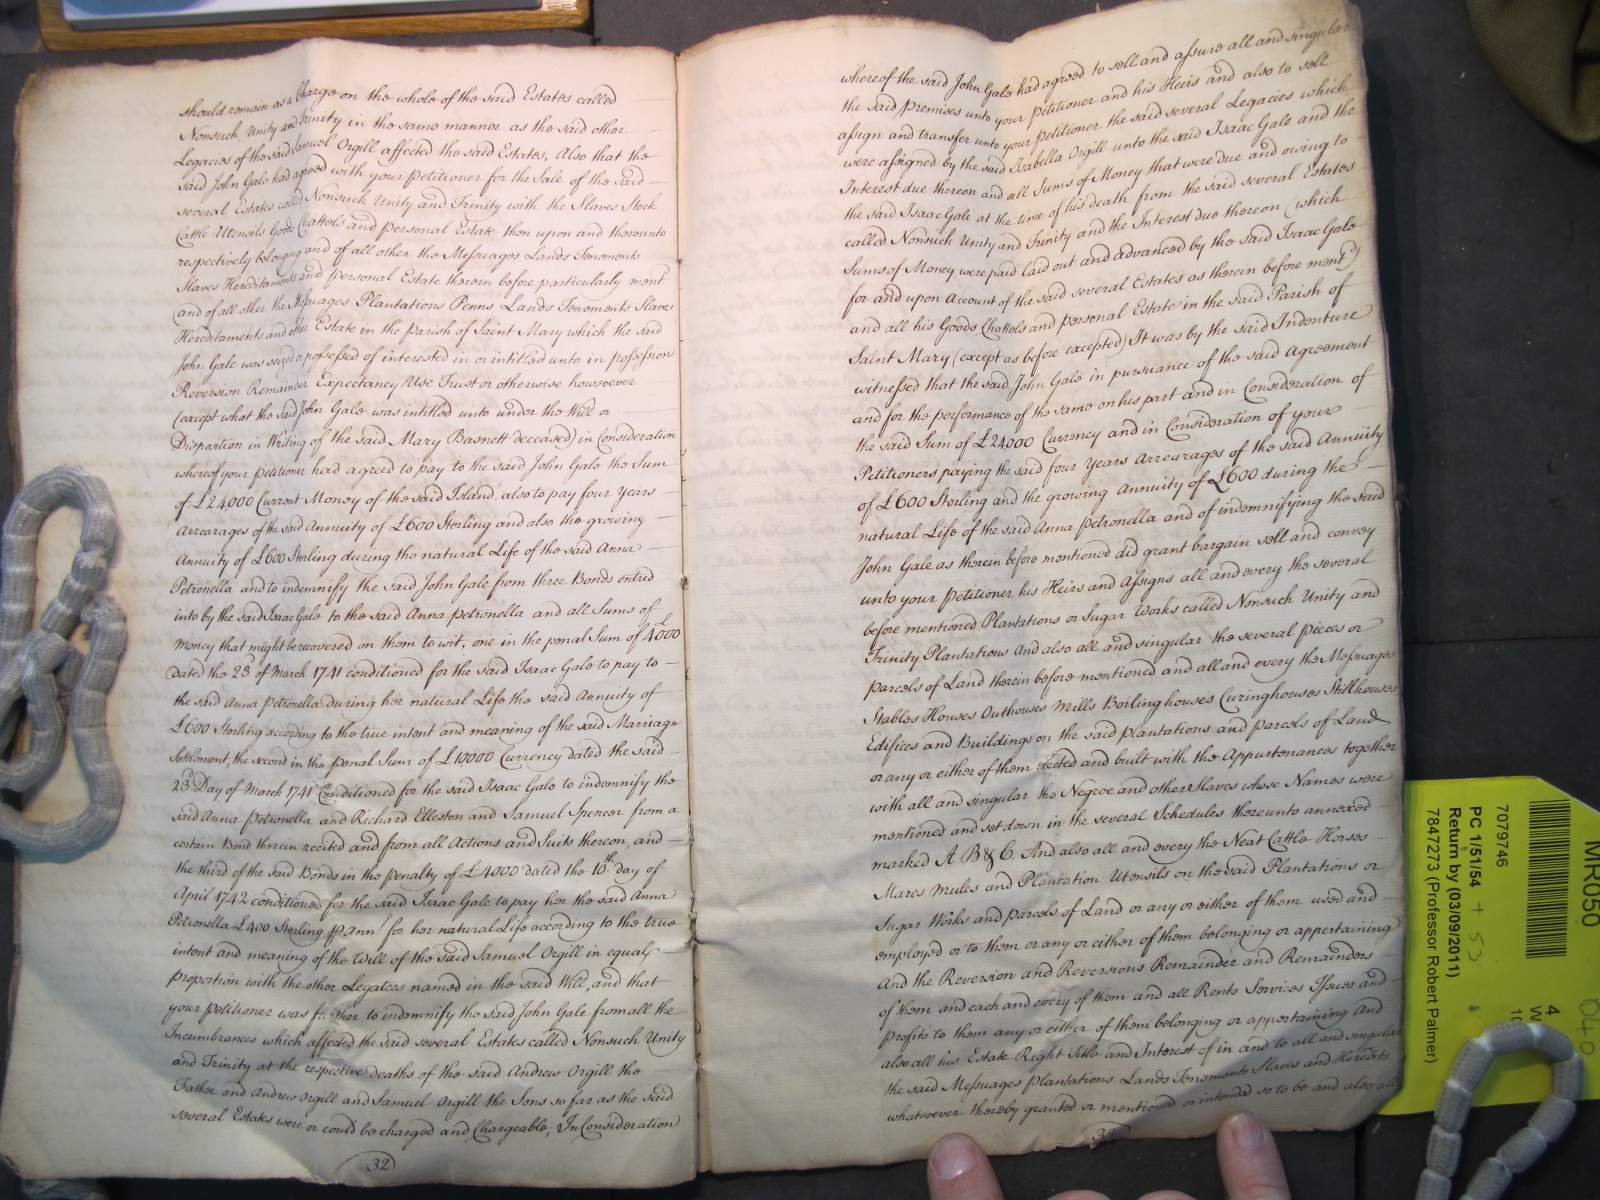 should remain as a Charge on the whole of the said Estates called
Nonsuch, Unity and Trinity in the same manner as the said other
Legacies of the said Samuel Orgill affected the said Estates, Also that the
said John Gale had agreed with your Petitioner for the Sale of the said
several Estates called Nonsuch Unity and Trinity with the Slaves Stock
Cattle Utensils Goods Chattels and personal Estate then upon and thereunto
respectively belonging and of all other the Messuages Lands Tenements
Slaves Hereditaments and personal Estate therein before particularly ment.
(and of all other the Messuages Plantations Penns Lands Tenements Slaves
Hereditaments and other Estate in the Parish of Saint Mary which the said
John Gale was seized or possessed of interested in or intitled unto in possession
Reversion Remainder Expectancy Use Trust or otherwise howsoever
(except what the said John Gale was intitled unto under the Will or
Disposition in Writing of the said Mary Basnett deceased) in Consideration
whereof your Petitioner had agreed to pay to the said John Gale the Sum
of £24,000 Current Money of the said Island, also to pay four Years
Arrearages of the said Annuity of £600 Sterling and also the growing
Annuity of £600 Sterling during the natural Life of the said Anna
Petronella and to indemnify the said John Gale from three Bonds entred
into by the said Isaac Gale to the said Anna Petronella and all Sums of
Money that might be recovered on them to wit, one in the penal Sum of 4000£
dated the 23 of March 1741 conditioned for the said Isaac Gale to pay to
the said Anna Petronella during her natural Life the said Annuity of
£600 Sterling according to the true intent and meaning of the said Marriage
Settlement, the second in the penal Sum of £10000 Currency dated the said
23d Day of March 1741 Conditioned for the said Isaac Gale to indemnify the
said Anna Petronella and Richard Elleston and Samuel Spencer from a
certain Bond therein recited and from all Actions and Suits thereon, and
the third of the said Bonds in the penalty of £4000 dated the 16th day of
April 1742 conditioned for the said Isaac Gale to pay her the said Anna
Petronella £400 Sterling ⅌ Ann for her natural Life according to the true
intent and meaning of the Will of the said Samuel Orgill in equal
proportion with the other Legatees named in the said Will, and that
your Petitioner was further to indemnify the said John Gale from all the
Incumbrances which affected the said several Estates called Nonsuch Unity
and Trinity at the respective deaths of the said Andrew Orgill the
Father and Andrew Orgill and Samuel Orgill the Sons so far as the said
several Estates were or could be charged and Chargeable, In Consideration
32
whereof the said John Gale had agreed to sell and assure all and singular
the said premises unto your Petitioner and his Heirs and also to sell
assign and transfer unto your Petitioner the said several Legacies which
were assigned by the said Isabella Orgill unto the said Isaac Gale and the
Interest due thereon and all Sums of Money that were due and owing to
the said Isaac Gale at the time of his death from the said several Estates
called Nonsuch Unity and Trinity and the Interest due thereon (which
Sums of Money were paid laid out and advanced by the said Isaac Gale
for and upon Account of the said several Estates as therein before ment'd)
and all his Goods Chattels and personal Estate in the said Parish of
Saint Mary (except as before excepted) It was by the said Indenture
witnessed that the said John Gale in pursuance of the said Agreement
and for the performance of the same on his part and in Consideration of
the said Sum of £24000 Currency and in Consideration of your
Petitioners paying the said four Years Arrearages of the said Annuity
of £600 Sterling and the growing Annuity of £600 during the
natural Life of the said Anna Petronella and of indemnifying the said
John Gale as therein before mentioned did grant bargain sell and convey
unto your Petitioner his Heirs and Assigns all and every the several
before mentioned Plantations or Sugar Works called Nonsuch Unity and
Trinity Plantations And also all and singular the several pieces or
parcels of Land therein before mentioned and all and every the Messuages
Stables Houses Outhouses Mills Boilinghouses Curinghouses Stillhouses
Edifices and Buildings on the said plantations and parcels of Land
or any or either of them erected and built with the Appurtenances together
with all and singular the Negroe and other Slaves whose Names were
mentioned and set down in the several Schedules thereunto annexed
marked A B & C. And also all and every the Neat Cattle Horses
Mares Mules and Plantation Utensils on the said Plantations or
Sugar Works and parcels of Land or any or either of them used and
employed or to them or any or either of them belonging or appertaining
And the Reversion and Reversions Remainder and Remainders
of them and each and every of them and all Rents Services Issues and
profits to them any or either of them belonging or appertaining And
also all his Estate Right Title and Interest of in and to all and singular
the said Messuages plantations Lands Tenements Slaves and Heredits
whatsoever thereby granted or mentioned or intended so to be and also all
7079746
PC 1/51/54 + 53
Return by (03/09/2011)
7847273 (Professor Robert Palmer)
MR050
040